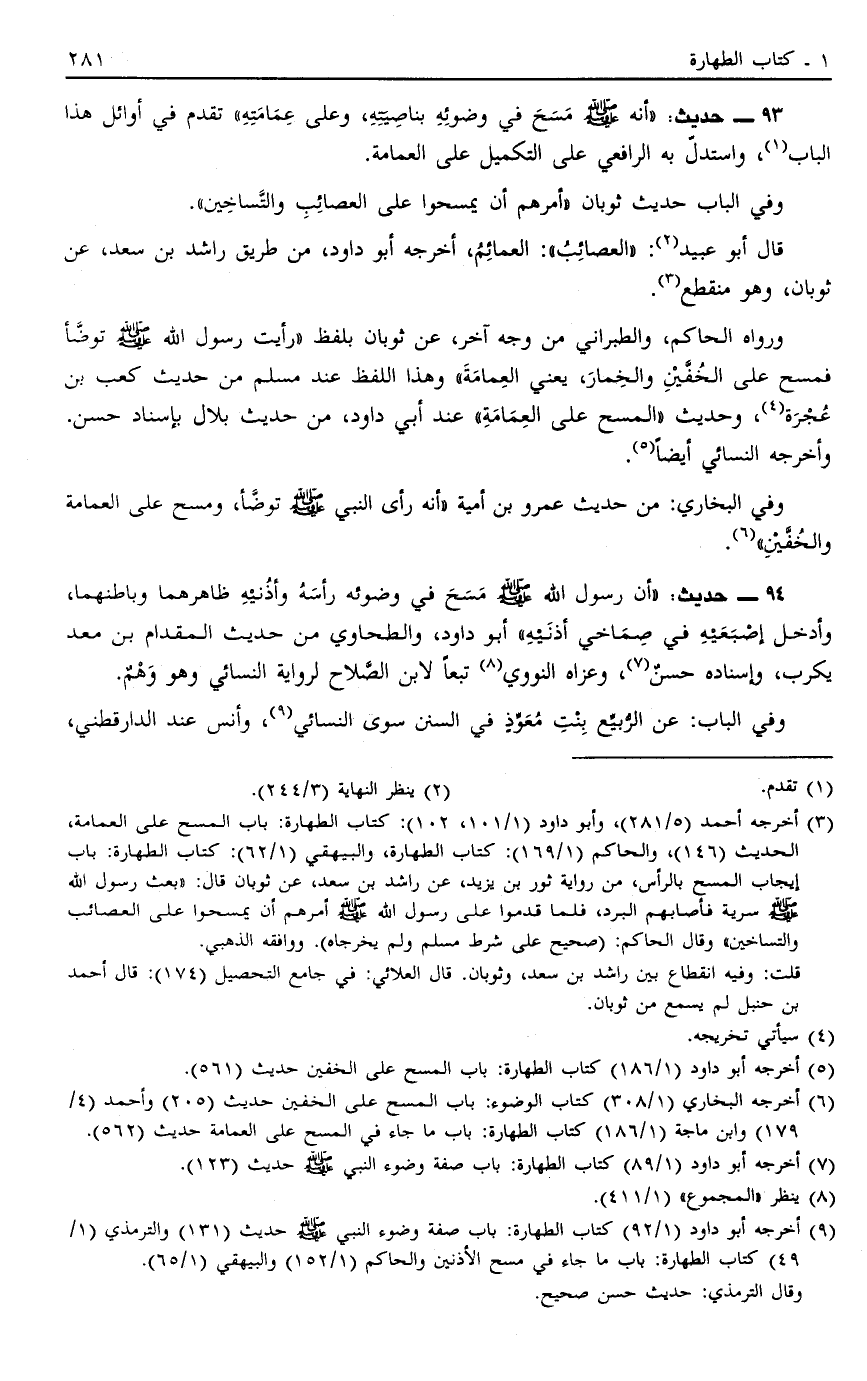 ١ ـ كتاب الطهارة ٢٨١
٩٣ ـــ حديث: «أنه ﷺ مَسَحَ في وضوئِهِ بناصِيَتِهِ، وعلى عِمَامَتِهِ» تقدم في أوائل هذا
الباب(١)، واستدلّ به الرافعي على التكميل على العمامة.
وفي الباب حديث ثوبان «أمرهم أن يمسحوا على العصائِبِ والتَّساخِين».
قال أبو عبيد(٢): «العصائِبُ»: العمائِمُ، أخرجه أبو داود، من طريق راشد بن سعد، عن
ثوبان، وهو منقطع(٣).
ورواه الحاكم، والطبراني من وجه آخر، عن ثوبان بلفظ «رأيت رسول الله ﷺ توضَّأ
فمسح على الخُفَّيْنِ والخِمارَ، يعني العِمامَةَ» وهذا اللفظ عند مسلم من حديث كعب بن
عُجْرَة(٤)، وحديث «المسح على العِمَامَةِ» عند أبي داود، من حديث بلال بإسناد حسن.
وأخرجه النسائي أيضاً(٥).
وفي البخاري: من حديث عمرو بن أمية «أنه رأى النبي ﷺ توضَّأ، ومسح على العمامة
والخُفَّيْنِ»(٦).
٩٤ ـــ حديث: «أن رسول الله ﷺ مَسَحَ في وضوئه رأسَهُ وأذُنيْهِ ظاهرهما وباطنهما،
وأدخل إصْبَعَيْهِ في صِمَاخي أذنَيْهِ» أبو داود، والطحاوي من حديث المقدام بن معد
يكرب، وإسناده حسنٌ(٧)، وعزاه النووي(٨) تبعاً لابن الصَّلاح لرواية النسائي وهو وَهْمٌ.
وفي الباب: عن الرُبيِّع بِنْتِ مُعَوِّذٍ في السنن سوى النسائي(٩)، وأنس عند الدارقطني،
(١) تقدم. (٢) ينظر النهاية (٢٤٤/٣).
(٣) أخرجه أحمد (٢٨١/٥)، وأبو داود (١٠١/١، ١٠٢): كتاب الطهارة: باب المسح على العمامة،
الحديث (١٤٦)، والحاكم (١٦٩/١): كتاب الطهارة، والبيهقي (٦٢/١): كتاب الطهارة: باب
إيجاب المسح بالرأس، من رواية ثور بن يزيد، عن راشد بن سعد، عن ثوبان قال: «بعث رسول الله
ﷺ سرية فأصابهم البرد، فلما قدموا على رسول الله ﷺ أمرهم أن يمسحوا على العصائب
والتساخين» وقال الحاكم: (صحيح على شرط مسلم ولم يخرجاه). ووافقه الذهبي.
قلت: وفيه انقطاع بين راشد بن سعد، وثوبان. قال العلائي: في جامع التحصيل (١٧٤): قال أحمد
بن حنبل لم يسمع من ثوبان.
(٤) سيأتي تخريجه.
(٥) أخرجه أبو داود (١٨٦/١) كتاب الطهارة: باب المسح على الخفين حديث (٥٦١).
(٦) أخرجه البخاري (٣٠٨/١) كتاب الوضوء: باب المسح على الخفين حديث (٢٠٥) وأحمد (٤/
١٧٩) وابن ماجة (١٨٦/١) كتاب الطهارة: باب ما جاء في المسح على العمامة حديث (٥٦٢).
(٧) أخرجه أبو داود (٨٩/١) كتاب الطهارة: باب صفة وضوء النبي ﷺ حديث (١٢٣).
(٨) ينظر «المجموع» (٤١١/١).
(٩) أخرجه أبو داود (٩٢/١) كتاب الطهارة: باب صفة وضوء النبي ﷺ حديث (١٣١) والترمذي (١/
٤٩) كتاب الطهارة: باب ما جاء في مسح الأذنين والحاكم (١٥٢/١) والبيهقي (٦٥/١).
وقال الترمذي: حديث حسن صحيح.